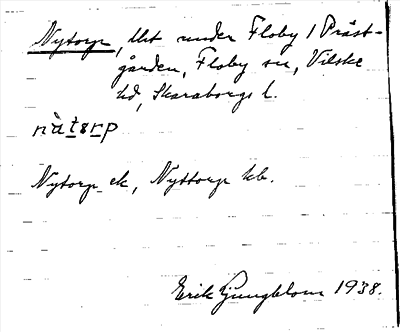 Nytorp, lht under Floby 1 Präst-
gården, Floby sn, Vilske
hd, Skaraborgs l.
Nytorp ek, Nyttorp kb.
Erik Ljungblom 1938.